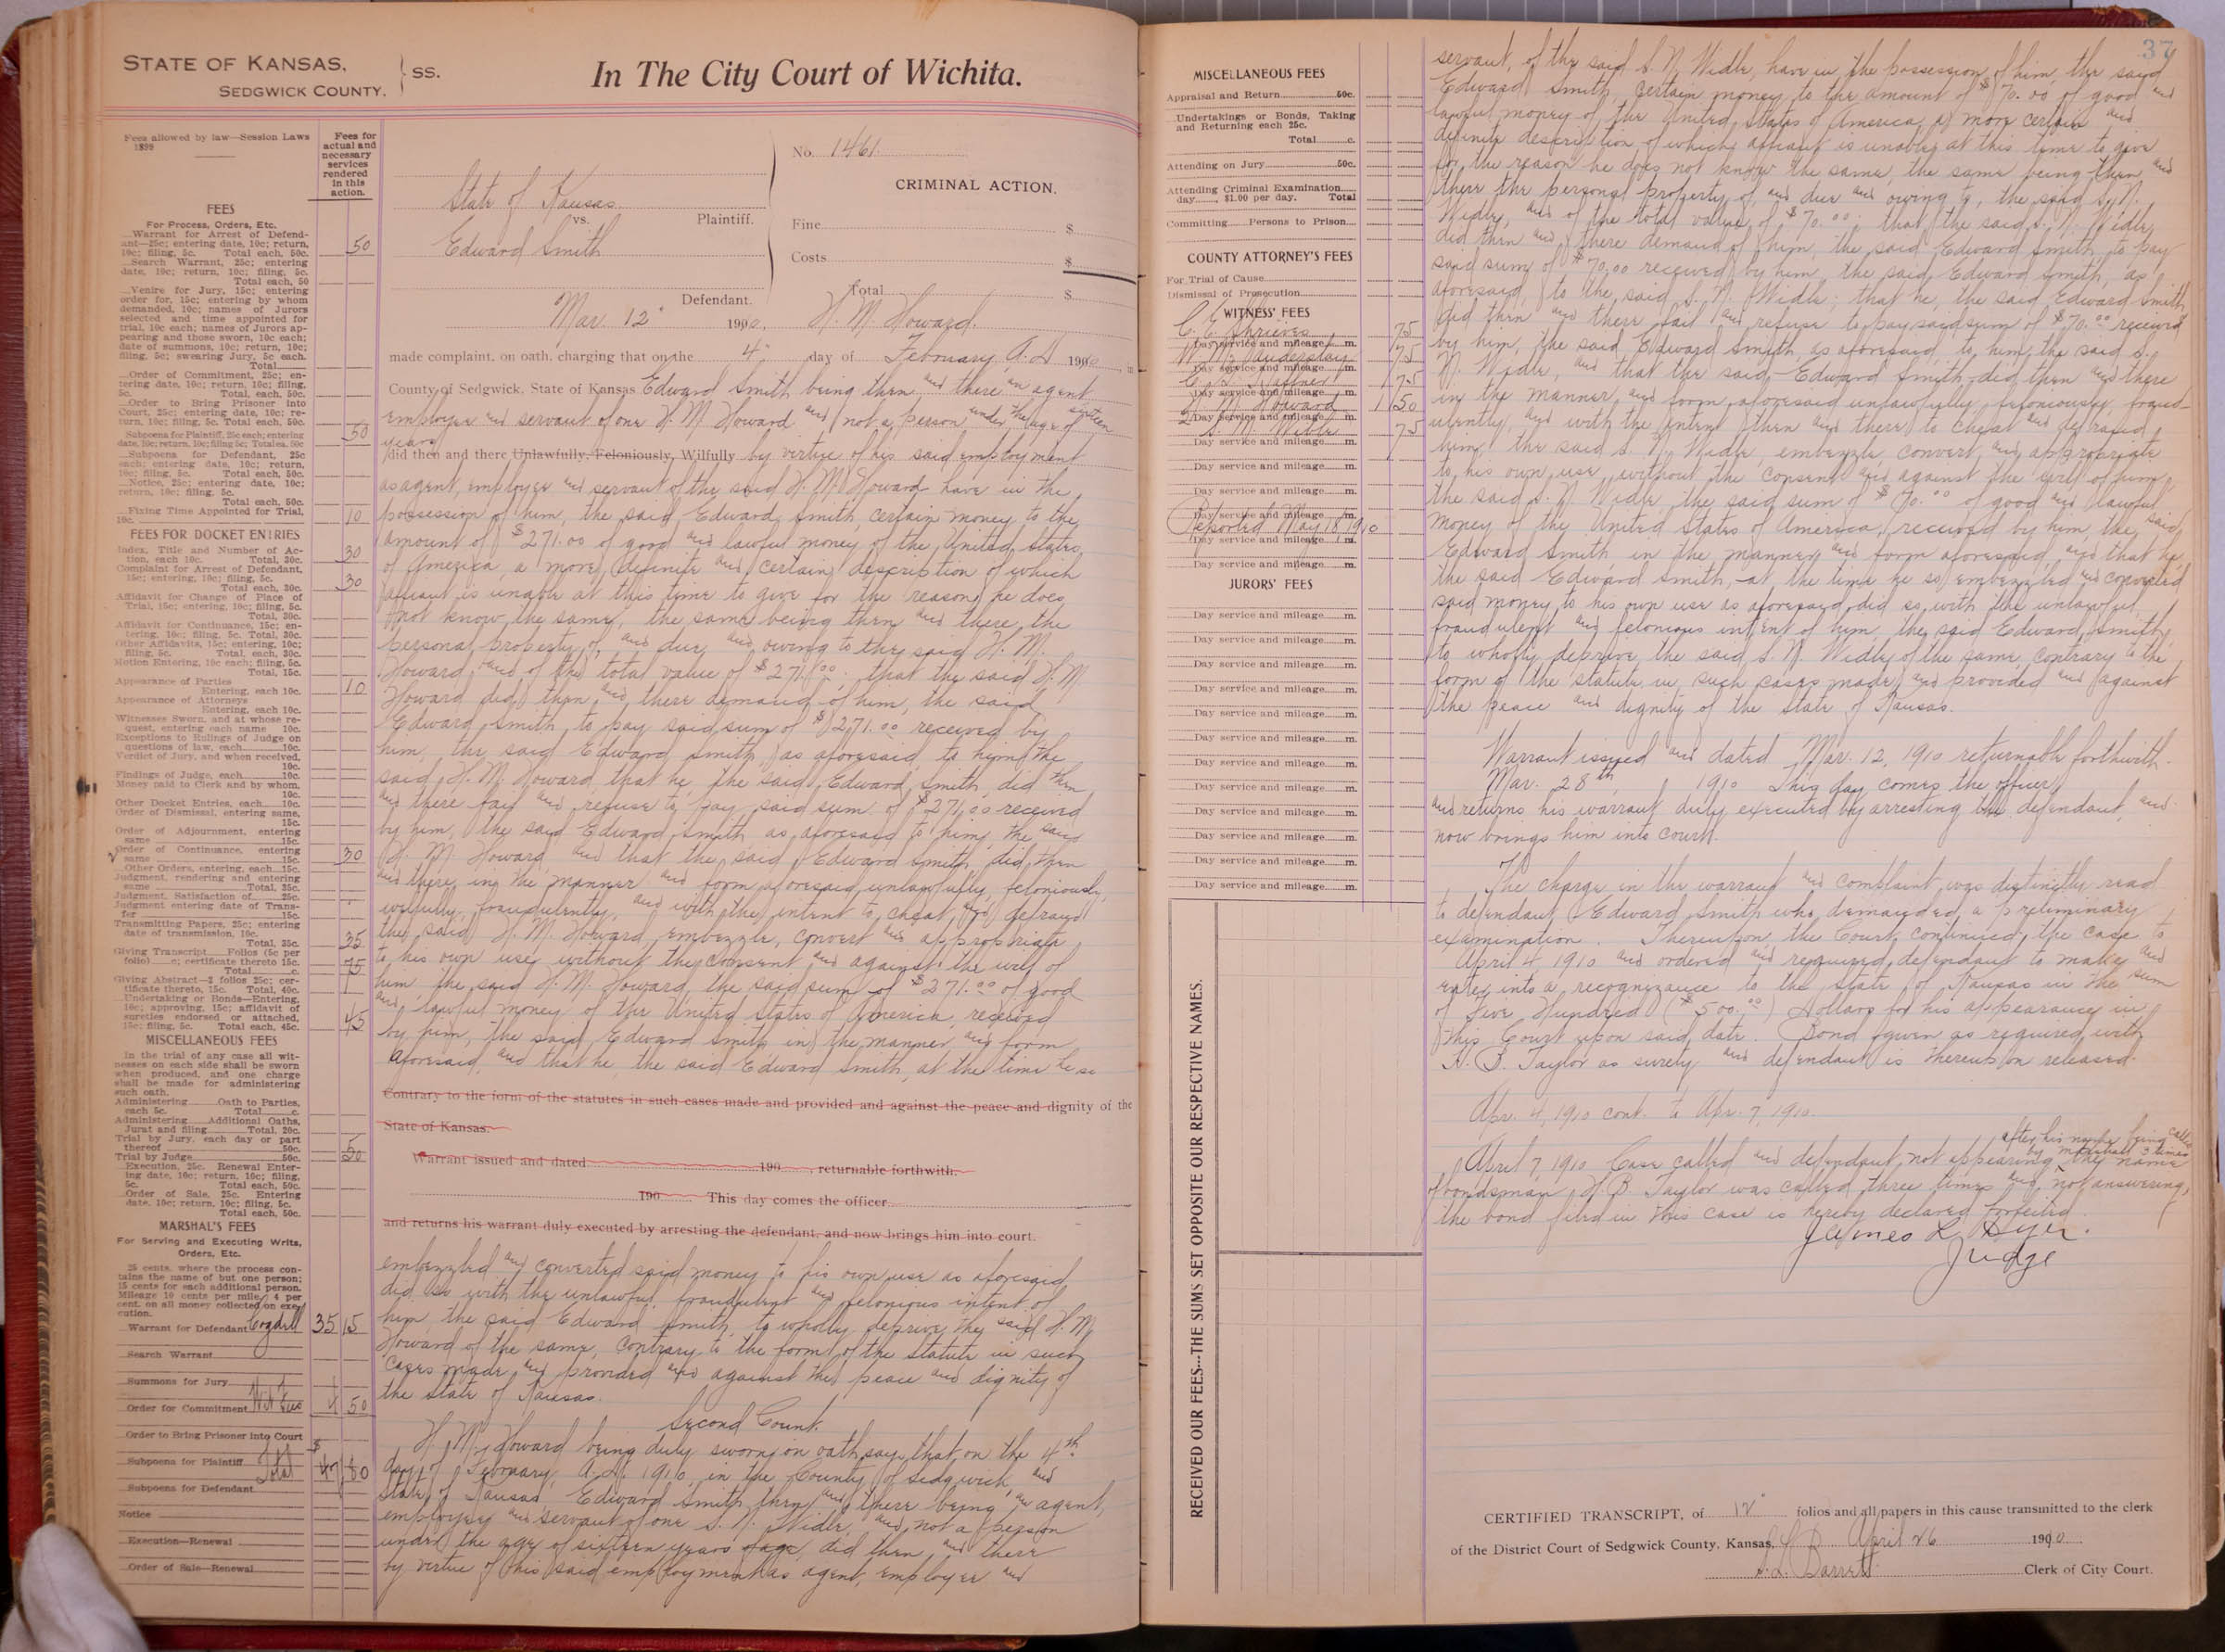 STATE OF KANSAS,
SEDGWICK COUNTY.
SS.
In The City Court of Wichita.
Fees allowed by law—Session Laws
1899
Fees for
actual and
necessary
services
rendered
in this
action.
FEES
For Process, Orders, Etc.
Warrant for Arrest of Defend-
ant—25c; entering date, 10c; return,
10c; filing, 5c. Total each, 50c. 50
Search Warrant, 25c; entering
date, 10c; return, 10c; filing, 5c.
Total each, 50
Venire for Jury, 15c; entering
order for, 15c; entering by whom
demanded, 10c; names of Jurors
selected and time appointed for
trial, 10c each; names of Jurors ap-
pearing and those sworn, 10c each;
date of summons, 10c; return, 10c;
filing, 5c; swearing Jury, 5c each.
Total
Order of Commitment, 25c; en-
tering date, 10c; return, 10c; filing,
5c. Total, each, 50c.
Order to Bring Prisoner into
Court, 25c; entering date, 10c; re-
turn, 10c; filing, 5c. Total each, 50c.
Subpoena for Plaintiff, 25c each; entering
date, 10c; return, 10c; filing 5c; Total ea. 50c 50
Subpoena for Defendant, 25c
each; entering date, 10c; return,
10c; filing, 5c. Total each, 50c.
Notice, 25c; entering date, 10c;
return, 10c; filing, 5c.
Total each, 50c.
Fixing Time Appointed for Trial,
10c. 10
FEES FOR DOCKET ENTRIES
Index, Title and Number of Ac-
tion, each 10c. Total, 30c. 30
Complaint for Arrest of Defendant,
15c; entering, 10c; filing, 5c.
Total each, 30c. 30
Affidavit for Change of Place of
Trial, 15c; entering, 10c; filing, 5c.
Total, 30c.
Affidavit for Continuance, 15c; en-
tering, 10c; filing, 5c. Total, 30c.
Other Affidavits, 15c; entering, 10c;
filing, 5c. Total, each, 30c.
Motion Entering, 10c each; filing, 5c.
Total, 15c.
Appearance of Parties
Entering, each 10c. 10
Appearance of Attorneys
Entering, each 10c.
Witnesses Sworn, and at whose re-
quest, entering each name 10c.
Exceptions to Rulings of Judge on
questions of law, each 10c.
Verdict of Jury, and when received,
10c.
Findings of Judge, each 10c.
Money paid to Clerk and by whom,
10c.
Other Docket Entries, each 10c.
Order of Dismissal, entering same,
15c.
Order of Adjournment, entering
same 15c.
Order of Continuance, entering
same 15c. 30
Other Orders, entering, each 15c.
Judgment, rendering and entering
same Total, 25c.
Judgment, Satisfaction of 25c.
Judgment entering date of Trans-
fer 15c.
Transmitting Papers, 25c; entering
date of transmission, 10c.
Total, 35c. 35
Giving Transcript Folios (5c per
folio) c; certificate thereto 15c.
Total c. 75
Giving Abstract—2 folios 25c; cer-
tificate thereto, 15c. Total, 40c.
Undertaking or Bonds—Entering,
10c; approving, 15c; affidavit of
sureties endorsed or attached,
15c; filing, 5c. Total each, 45c. 45
MISCELLANEOUS FEES
In the trial of any case all wit-
nesses on each side shall be sworn
when produced, and one charge
shall be made for administering
such oath.
Administering Oath to Parties,
each 5c. Total c.
Administering Additional Oaths,
Jurat and filing Total, 20c.
Trial by Jury, each day or part
thereof 50c. 50
Trial by Judge 50c.
Execution, 25c. Renewal Enter-
ing date, 10c; return, 10c; filing,
5c. Total each, 50c.
Order of Sale, 25c. Entering
date, 10c; return, 10c; filing, 5c.
Total each, 50c.
MARSHAL'S FEES
For Serving and Executing Writs,
Orders, Etc.
25 cents, where the process con-
tains the name of but one person;
15 cents for each additional person.
Mileage 10 cents per mile; 4 per
cent. on all money collected on exe-
cution.
Warrant for Defendant Cogdill 35 15
Search Warrant
Summons for Jury
Order for Commitment Wit fees 4 50
Order to Bring Prisoner into Court
Subpoena for Plaintiff Total $47 80
Subpoena for Defendant
Notice
Execution—Renewal
Order of Sale—Renewal
State of Kansas
vs. Plaintiff.
Edward Smith
Defendant.
No. 1461
CRIMINAL ACTION.
Fine $
Costs $
Total $
Mar. 12" 1910. H. M. Howard.
made complaint, on oath, charging that on the 4" day of February A.D. 1910
County of Sedgwick, State of Kansas Edward Smith being then and there an agent
employee and servant of one H. M Howard and not a person under the age of sixteen
years
did then and there Unlawfully, Feloniously, Wilfully by virtue of his said employment
as agent, employee and servant of the said H. M. Howard have in the
possession of him, the said Edward Smith, certain money to the
amount of $271.00 of good and lawful money of the United States
of America, a more definite and certain description of which
affiant is unable at this time to give for the reason he does
not know the same, the same being then and there, the
personal property of, and due and owing to the said H. M.
Howard, and of the total value of $271.00; that the said H. M
Howard did then and there demand of him, the said
Edward Smith to pay said sum of $271.00 received by
him, the said Edward Smith, as aforesaid, to him the
said H. M. Howard, that he, the said Edward Smith, did then
and there fail and refuse to pay said sum of $271.00 received
by him, the said Edward Smith as aforesaid to him, the said
H. M. Howard and that the said Edward Smith did then
and there, in the manner and form aforesaid, unlawfully, feloniously,
wilfully, fraudulently, and with the intent to cheat and defraud
the said H. M. Howard, embezzle, convert and appropriate
to his own use, without the consent and against the will of
him the said H. M. Howard, the said sum of $271.00 of good
and lawful money of the United States of America, received
by him, the said Edward Smith in the manner and form
aforesaid, and that he the said Edward Smith, at the time he so
Contrary to the form of the statutes in such cases made and provided and against the peace and dignity of the
State of Kansas.
Warrant issued and dated 190 , returnable forthwith.
190 This day comes the officer
and returns his warrant duly executed by arresting the defendant, and now brings him into court.
embezzled and converted said money to his own use as aforesaid
did so with the unlawful, fraudulent and felonious intent of
him the said Edward Smith, to wholly deprive the said H. M.
Howard of the same, Contrary to the form of the statute in such
cases made and provided and against the peace and dignity of
the State of Kansas.
Second Count.
H. M. Howard being duly sworn, on oath says that on the 4th
day of February A.D. 1910, in the County of Sedgwick and
State of Kansas, Edward Smith then and there being an agent,
employee and servant of one S. N. Widle, and not a person
under the age of sixteen years of age, did then and there
by virtue of his said employment as agent, employee and
37
MISCELLANEOUS FEES
Appraisal and Return 50c.
Undertakings or Bonds, Taking
and Returning each 25c.
Total c.
Attending on Jury 50c.
Attending Criminal Examination
day , $1.00 per day. Total
Committing Persons to Prison
COUNTY ATTORNEY'S FEES
For Trial of Cause
Dismissal of Prosecution
WITNESS' FEES
C. E. Shrieves 75
Day service and mileage m.
75
Day service and mileage m.
75
Day service and mileage m.
Howard 1 50
Day service and mileage m.
S. N. Widle 75
Day service and mileage m.
Day service and mileage m.
Day service and mileage m.
Day service and mileage m.
Reported May 18, 1910
Day service and mileage m.
Day service and mileage m.
JURORS' FEES
Day service and mileage m.
Day service and mileage m.
Day service and mileage m.
Day service and mileage m.
Day service and mileage m.
Day service and mileage m.
Day service and mileage m.
Day service and mileage m.
Day service and mileage m.
Day service and mileage m.
Day service and mileage m.
Day service and mileage m.
RECEIVED OUR FEES---THE SUMS SET OPPOSITE OUR RESPECTIVE NAMES.
servant, of the said S. N. Widle, have in the possession of him, the said
Edward Smith, certain money to the amount of $70.00 of good and
lawful money of the United States of America, a more certain and
definite description of which affiant is unable at this time to give
for the reason he does not know the same, the same being then and
there the personal property of, and due and owing to, the said S. N.
Widle, and of the total value of $70.00; that the said S. N. Widle
did then and there demand of him, the said Edward Smith to pay
said sum of $70.00 received by him, the said Edward Smith, as
aforesaid, to the said S. N. Widle; that he, the said Edward Smith
did then and there fail and refuse to pay said sum of $70.00 received
by him, the said Edward Smith, as aforesaid, to him, the said S.
N. Widle, and that the said Edward Smith did then and there
in the manner and form aforesaid unlawfully, feloniously, fraud-
ulently, and with the intent then and there to cheat and defraud
him, the said S. N. Widle, embezzle, convert, and appropriate
to his own use, without the consent and against the will of him
the said S. N. Widle, the said sum of $70.00 of good and lawful
money of the United States of America, received by him, the said
Edward Smith in the manner and form aforesaid, and that he
the said Edward Smith, at the time he so embezzled and converted
said money to his own use as aforesaid did so with the unlawful
fraudulent and felonious intent of him, the said Edward Smith,
to wholly deprive the said S. N. Widle of the same, contrary to the
form of the statute in such cases made and provided and against
the peace and dignity of the State of Kansas.
Warrant issued and dated Mar. 12, 1910 returnable forthwith.
Mar. 28th, 1910 This day comes the officer
and returns his warrant duly executed by arresting the defendant, and
now brings him into court.
The charge in the warrant and complaint was distinctly read
to defendant Edward Smith who demanded a preliminary
examination. Thereupon the Court continued the case to
April 4 1910 and ordered and required defendant to make and
enter into a recognizance to the State of Kansas in the sum
of Five Hundred ($500.00) Dollars for his appearance in
this Court upon said date. Bond given as required with
H. B. Taylor as surety and defendant is thereupon released.
Apr. 4, 1910 cont. to Apr. 7, 1910.
after his name being called
by marshall 3 times
April 7, 1910 Case called and defendant not appearing the name
of bondsman H. B. Taylor was called three times and not answering,
the bond filed in this case is hereby declared forfeited.
James L Dyer.
Judge
CERTIFIED TRANSCRIPT, of 12 folios and all papers in this cause transmitted to the clerk
of the District Court of Sedgwick County, Kansas, April 26 1910
Barrett Clerk of City Court.